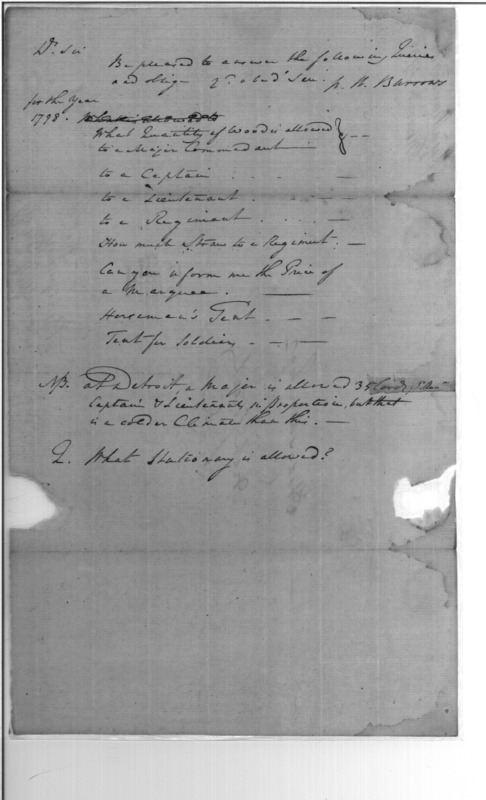 Dr Sir
Be pleased to answer the following Queries
and oblige yr. obedt Ser. W. W. Burrows
for the Year
1798.
What Quantity of Wood is allowed
to a Major Commandant —
to a Captain . . . —
to a Lieutenant . . . —
to a Regiment . . . . —
How much Straw to a Regiment. —
Can you inform me the Price of
a Marquee. —
Horseman's Tent. — —
Tent for Soldiers — . —
NB. at Detroit a Major is allowed 35 Cords
Captain & Lieutenants in proportion, but that
is a colder Climate than this. —
Q. What Stationary is allowed?